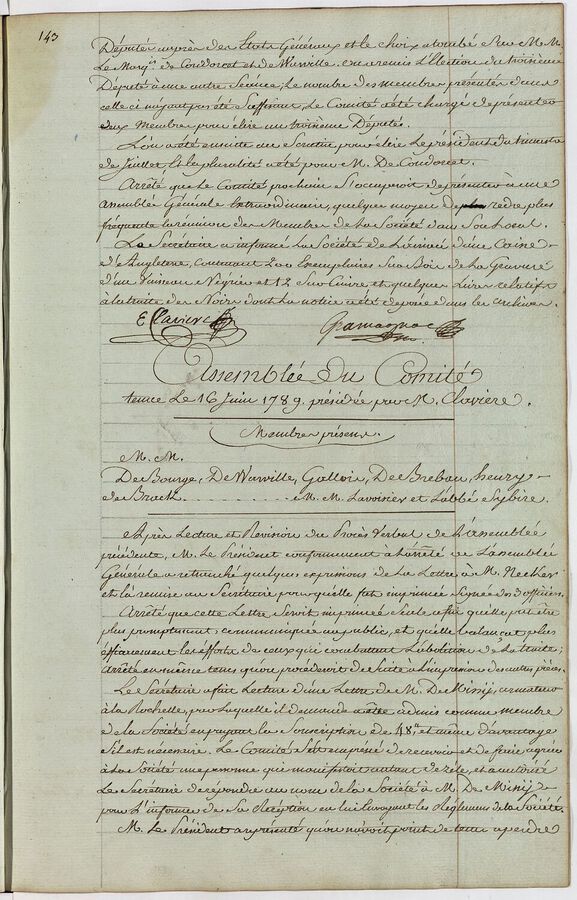 143
Députés auprès des Etats Généraux et le choix a tombé sur M. M.
Le Marq.is de Condorcet et de Warville, on a remis l'Election du troisieme
Député à une autre Séance; Le nombre des membres présentés dans
celle ci n'ayant pas été suffisant, Le Comité a été chargé de présenter
deux membres pour élire un troisieme Députés.
L'on a été ensuite au Scrutin pour élire Le président du trimestre
de Juillet, et la pluralité a été pour M. De Condorcet.
Arrêté que Le Comité prochain S'occuperoit de présenter à une
assemblée Générale Extraordinaire, quelque moyen de rendre plus
fréquente la réunion des Membres de La Société dans Son Local.
Le Secretaire a informé La Société de L'arrivée d'une Caisse
d'Angleterre, contenant 200 Exemplaires Sur Bois de La Gravure
d'un Vaisseau Négrier et 12 Sur Cuivre et quelques Livres relatifs
à la traite des Noirs dont La notice a été déposée dans les archives.
E Claviere Gramagnac
Assemblée Du Comité
tenue Le 16 Juin 1789. présidée par M. Claviere.
Membres présens.
M. M.
De Bourge, De Warville, Gallois, De Breban, henry
de Brack . . . . . . . . . M. M. Lavoisier et L'abbé Sybire.
Après Lecture et Revision du Procès Verbal de L'assemblée
précédente, M. Le Président conformement à l'arrêté de L'assemblée
Générale a retranché quelques expressions de La Lettre à M. Necker
et l'a remise au Secrétaire pour qu'elle fut imprimée Signée des 3 officiers.
Arrêté que cette Lettre Seroit imprimée Seule afin qu'elle put être
plus promptement communiquée au public, et qu'elle balançat plus
efficacement les efforts de ceux qui combattent L'abolition de La traite;
Arrêté en même tems qu'on procéderoit de Suite à l'impression des autres pièces.
Le Secrétaire a fait Lecture d'une Lettre de M. De Missy, armateur
à la Rochelle, par Laquelle il demande a être admis comme membre
de la Société en payant la Souscription de 48.tt et même d'avantage
S'il est nécessaire. Le Comité S'est empressé de recevoir et de faire agréer
à la Société une personne qui manifestoit autant de zèle, et a autorisé
Le Secrétaire de répondre au nom de la Société à M. De Missy
pour L'informer de Sa Réception en lui Envoyant les Réglemens de la Société.
M. Le Président a représenté qu'on n'avoit point de tems a perdre